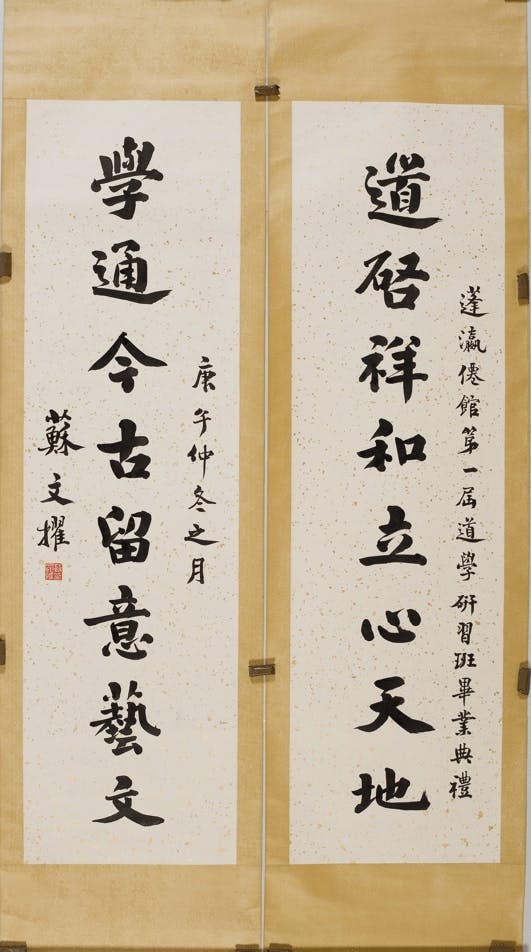 蓬瀛僊館第一屆道學研習班畢業典禮
道啓祥和立心天地
學通今古留意藝文
庚午仲冬之月
蘇文擢